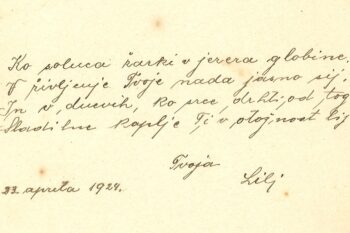 Ko solnca žarki v jezera globine,
V življenje Tvoje nada jasno sij,
In v dnevih, ko srce drhti od tog
Hladilne kaplje Ti v otožnost lij
Tvoja
23. aprila 1924. Lilj